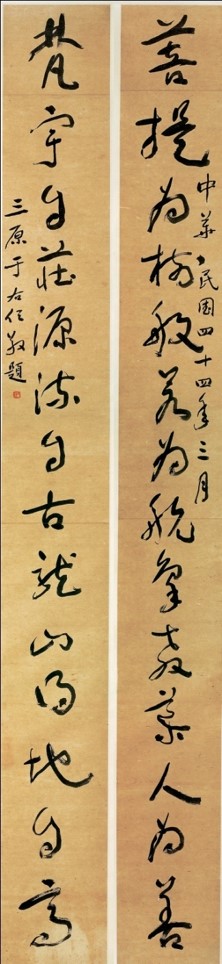 菩提為樹般若為航象教人為善
中華民國四十四年三月
梵宇自莊源流自古龍山得地自高
三原于右任敬題